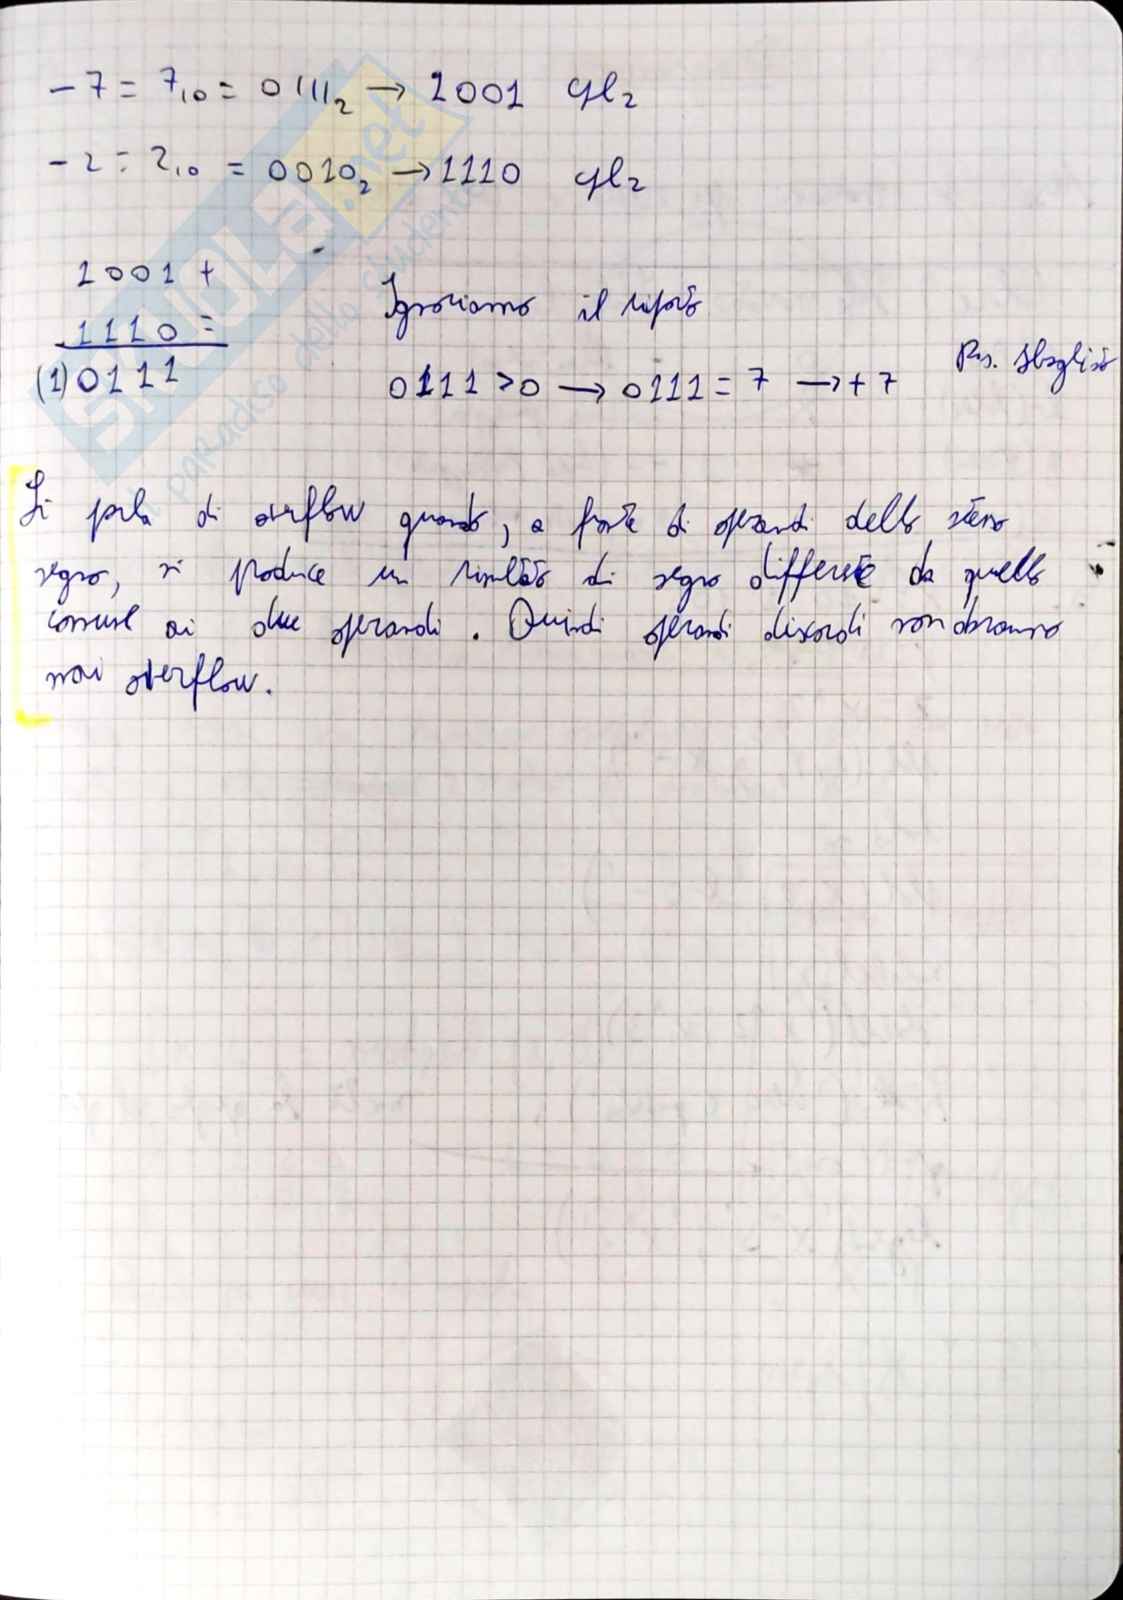 - 7 = 7₁₀ = 0111₂ → 1001 cpl₂
- 2 = 2₁₀ = 0010₂ → 1110 cpl₂
1001 +
1110 =
(1)0111
Ignoriamo il riporto
0111 > 0 → 0111 = 7 → + 7
Ris. sbagliato
Si parla di overflow quando, a fronte di operandi dello stesso
segno, si produce un risultato di segno differente da quello
comune ai due operandi. Quindi operandi discordi non daranno
mai overflow.
SKUOLA.net
il paradiso dello studente